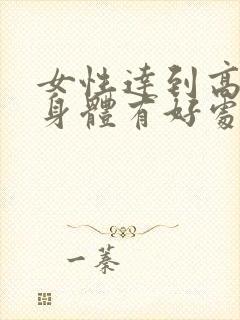 女性達到高
身體有好處
一蓁